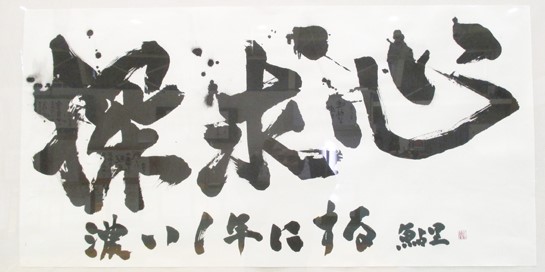 探求心
濃い1年にする 鮎里